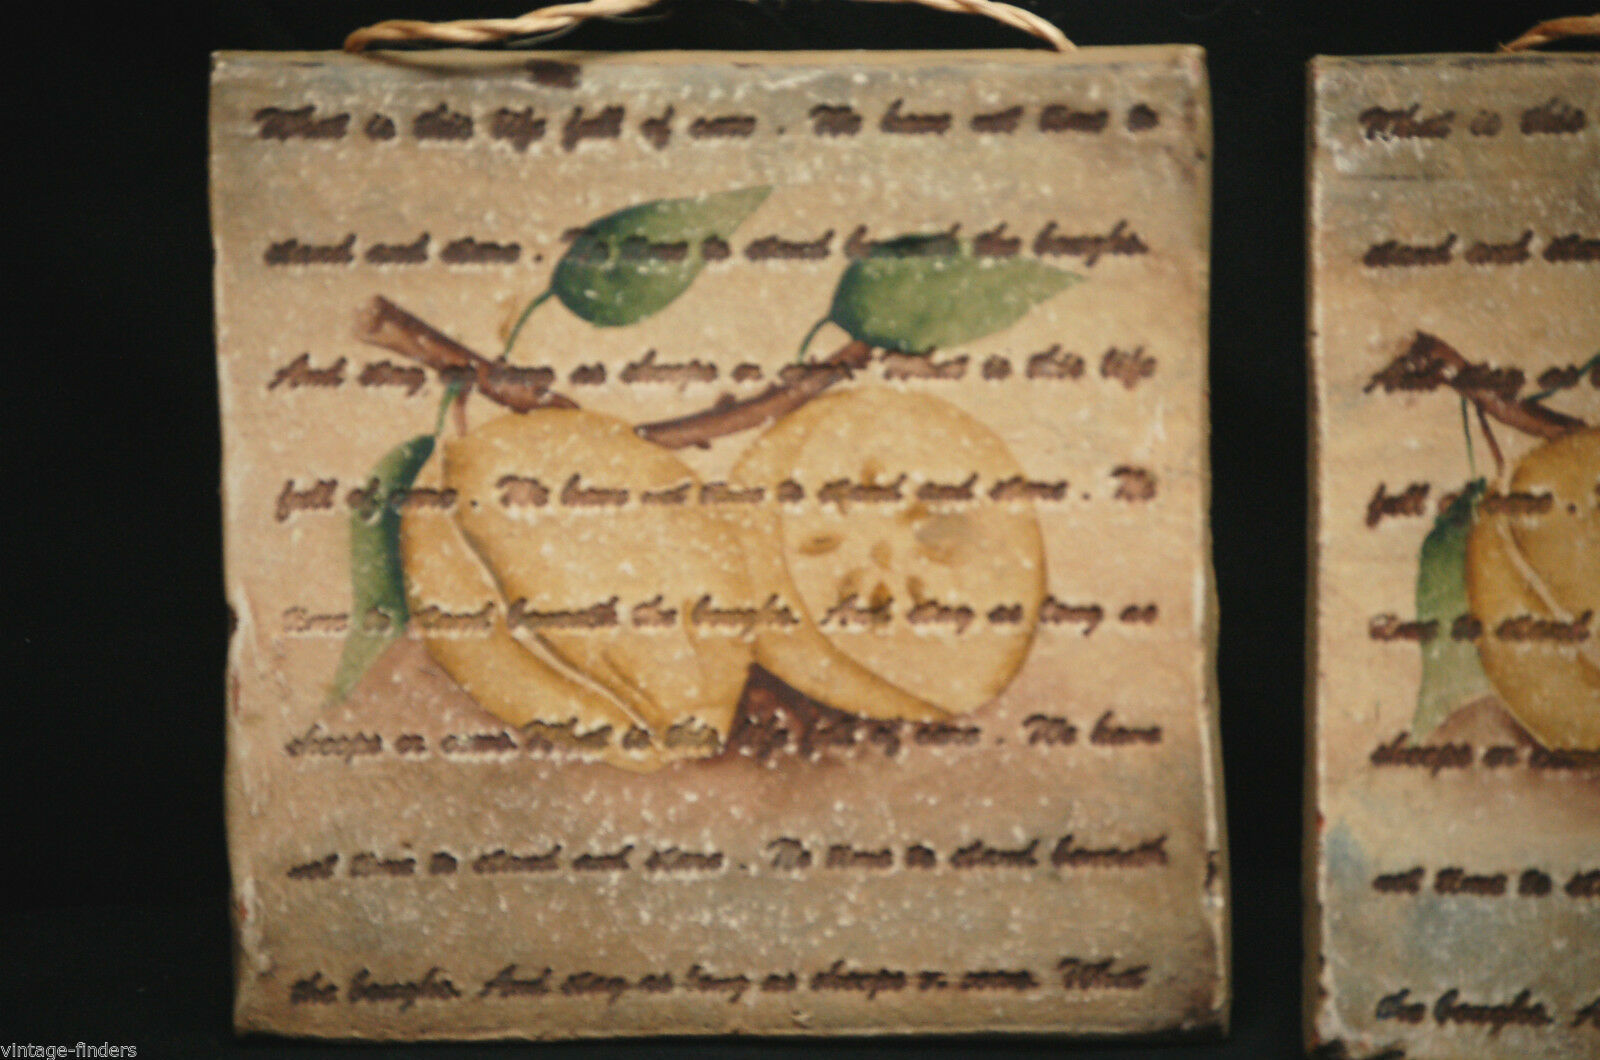 What is this life full of care . We have not time to
stand and stare . No time to stand beneath the boughs.
And stay as long as sheeps or cows. What is this life
full of care . We have not time to stand and stare . No
time to stand beneath the boughs. And stay as long as
sheeps or cows. What is this life full of care . We have
not time to stand and stare . No time to stand beneath
the boughs. And stay as long as sheeps or cows. What
What is this
stand and stare
And stay as
full of care .
time to stand
sheeps or cows
not time to
the boughs.
vintage-finders